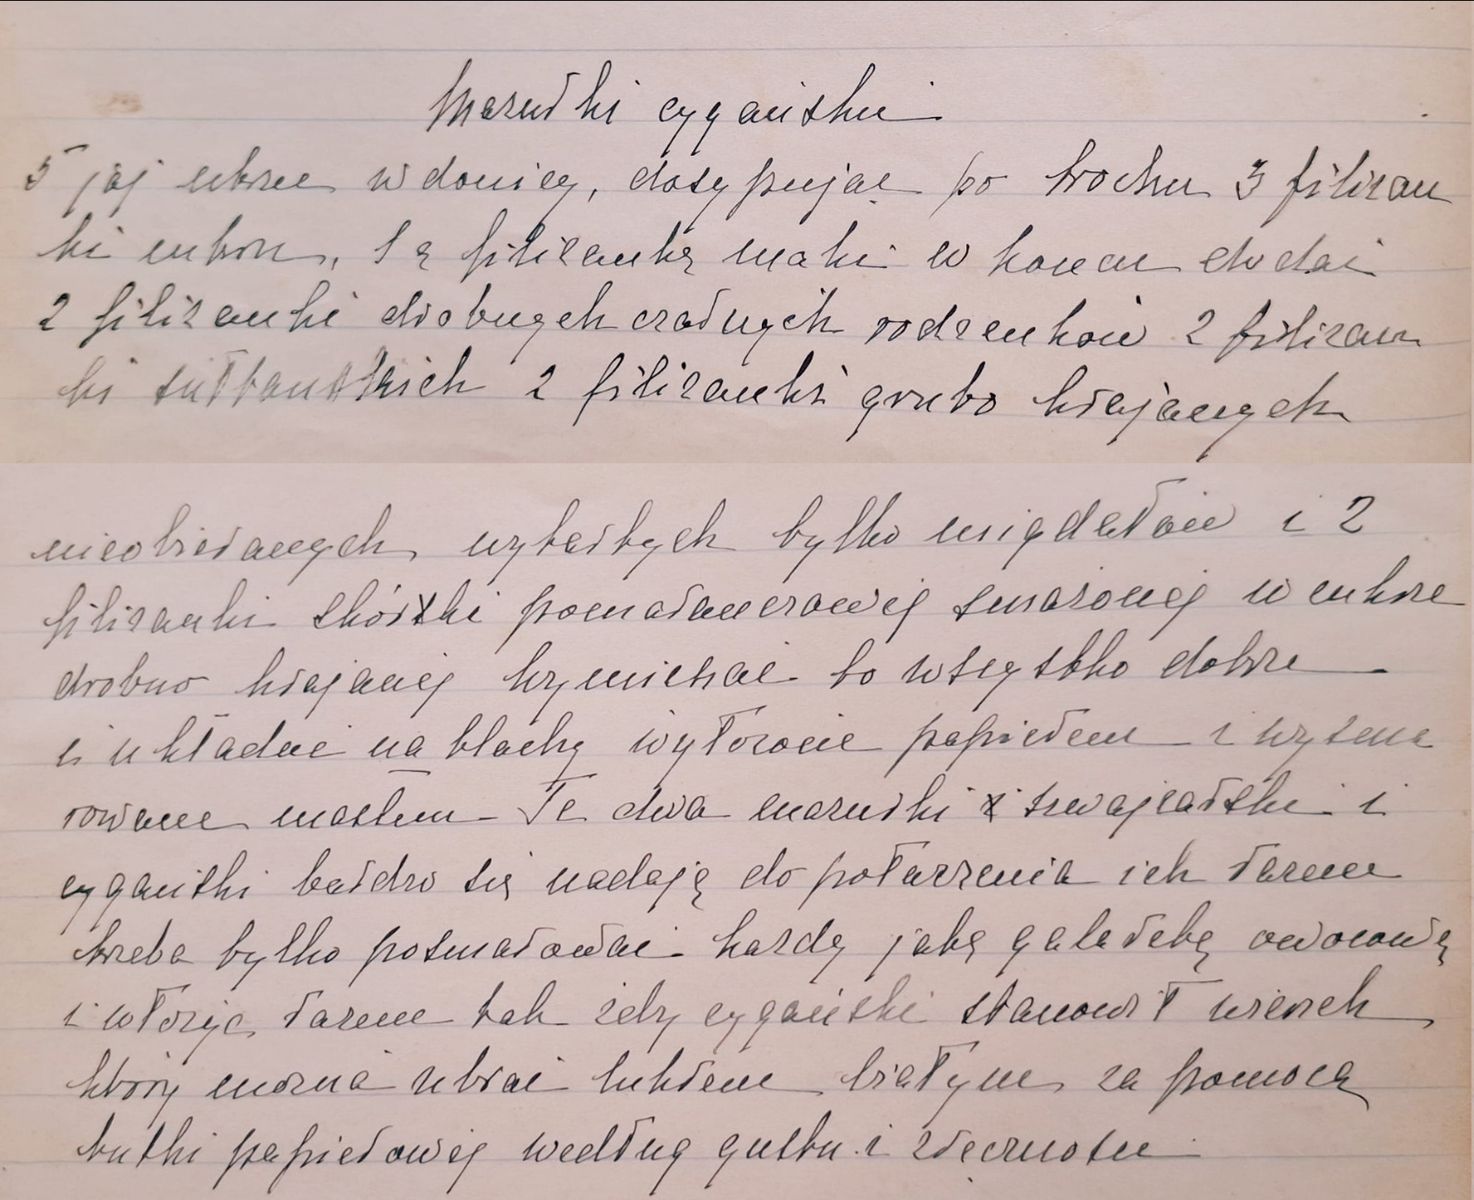 Mazurki cygańskie
5 jaj utrzeć w donicy, dosypując po trochu 3 filiżan
ki cukru, 1 ą filiżankę mąki w końcu dodać
2 filiżanki drobnych czarnych rodzenków 2 filiżan
ki sułtańskich 2 filiżanki grubo krajanych
nieobieranych wytartych tylko migdałów i 2
filiżanki skórki pomarańczowej smażonej w cukrze
drobno krajanej wymieszać to wszystko dobrze
i układać na blachy wyłożone papierem i wysma
rowane masłem – Te dwa mazurki szwajcarski i
cygański bardzo się nadają do połączenia ich razem
trzeba tylko posmarować każdy jaką galaretką owocową
i włożyć razem tak żeby cygański stanowił wierzch
który można ubrać lukrem białym za pomocą
tutki papierowej według gustu i zręczności